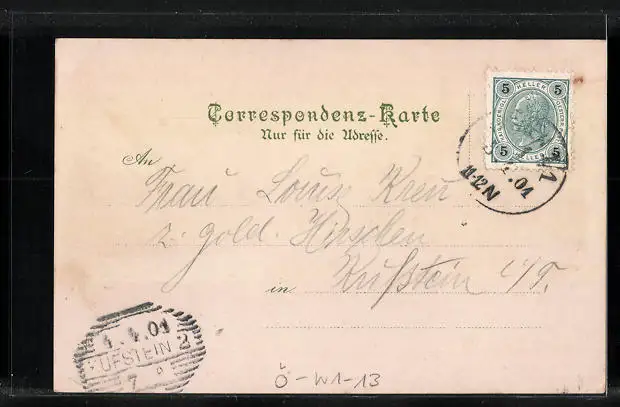 Correspondenz-Karte
Nur für die Adresse.
5 HELLER 5
5 HELLER 5
.01
11.12N
An
Frau Louis Kreu
z. gold. Hirschen
in Kufstein i/T.
4.4.01
KUFSTEIN 2
7
Ö-W1-13